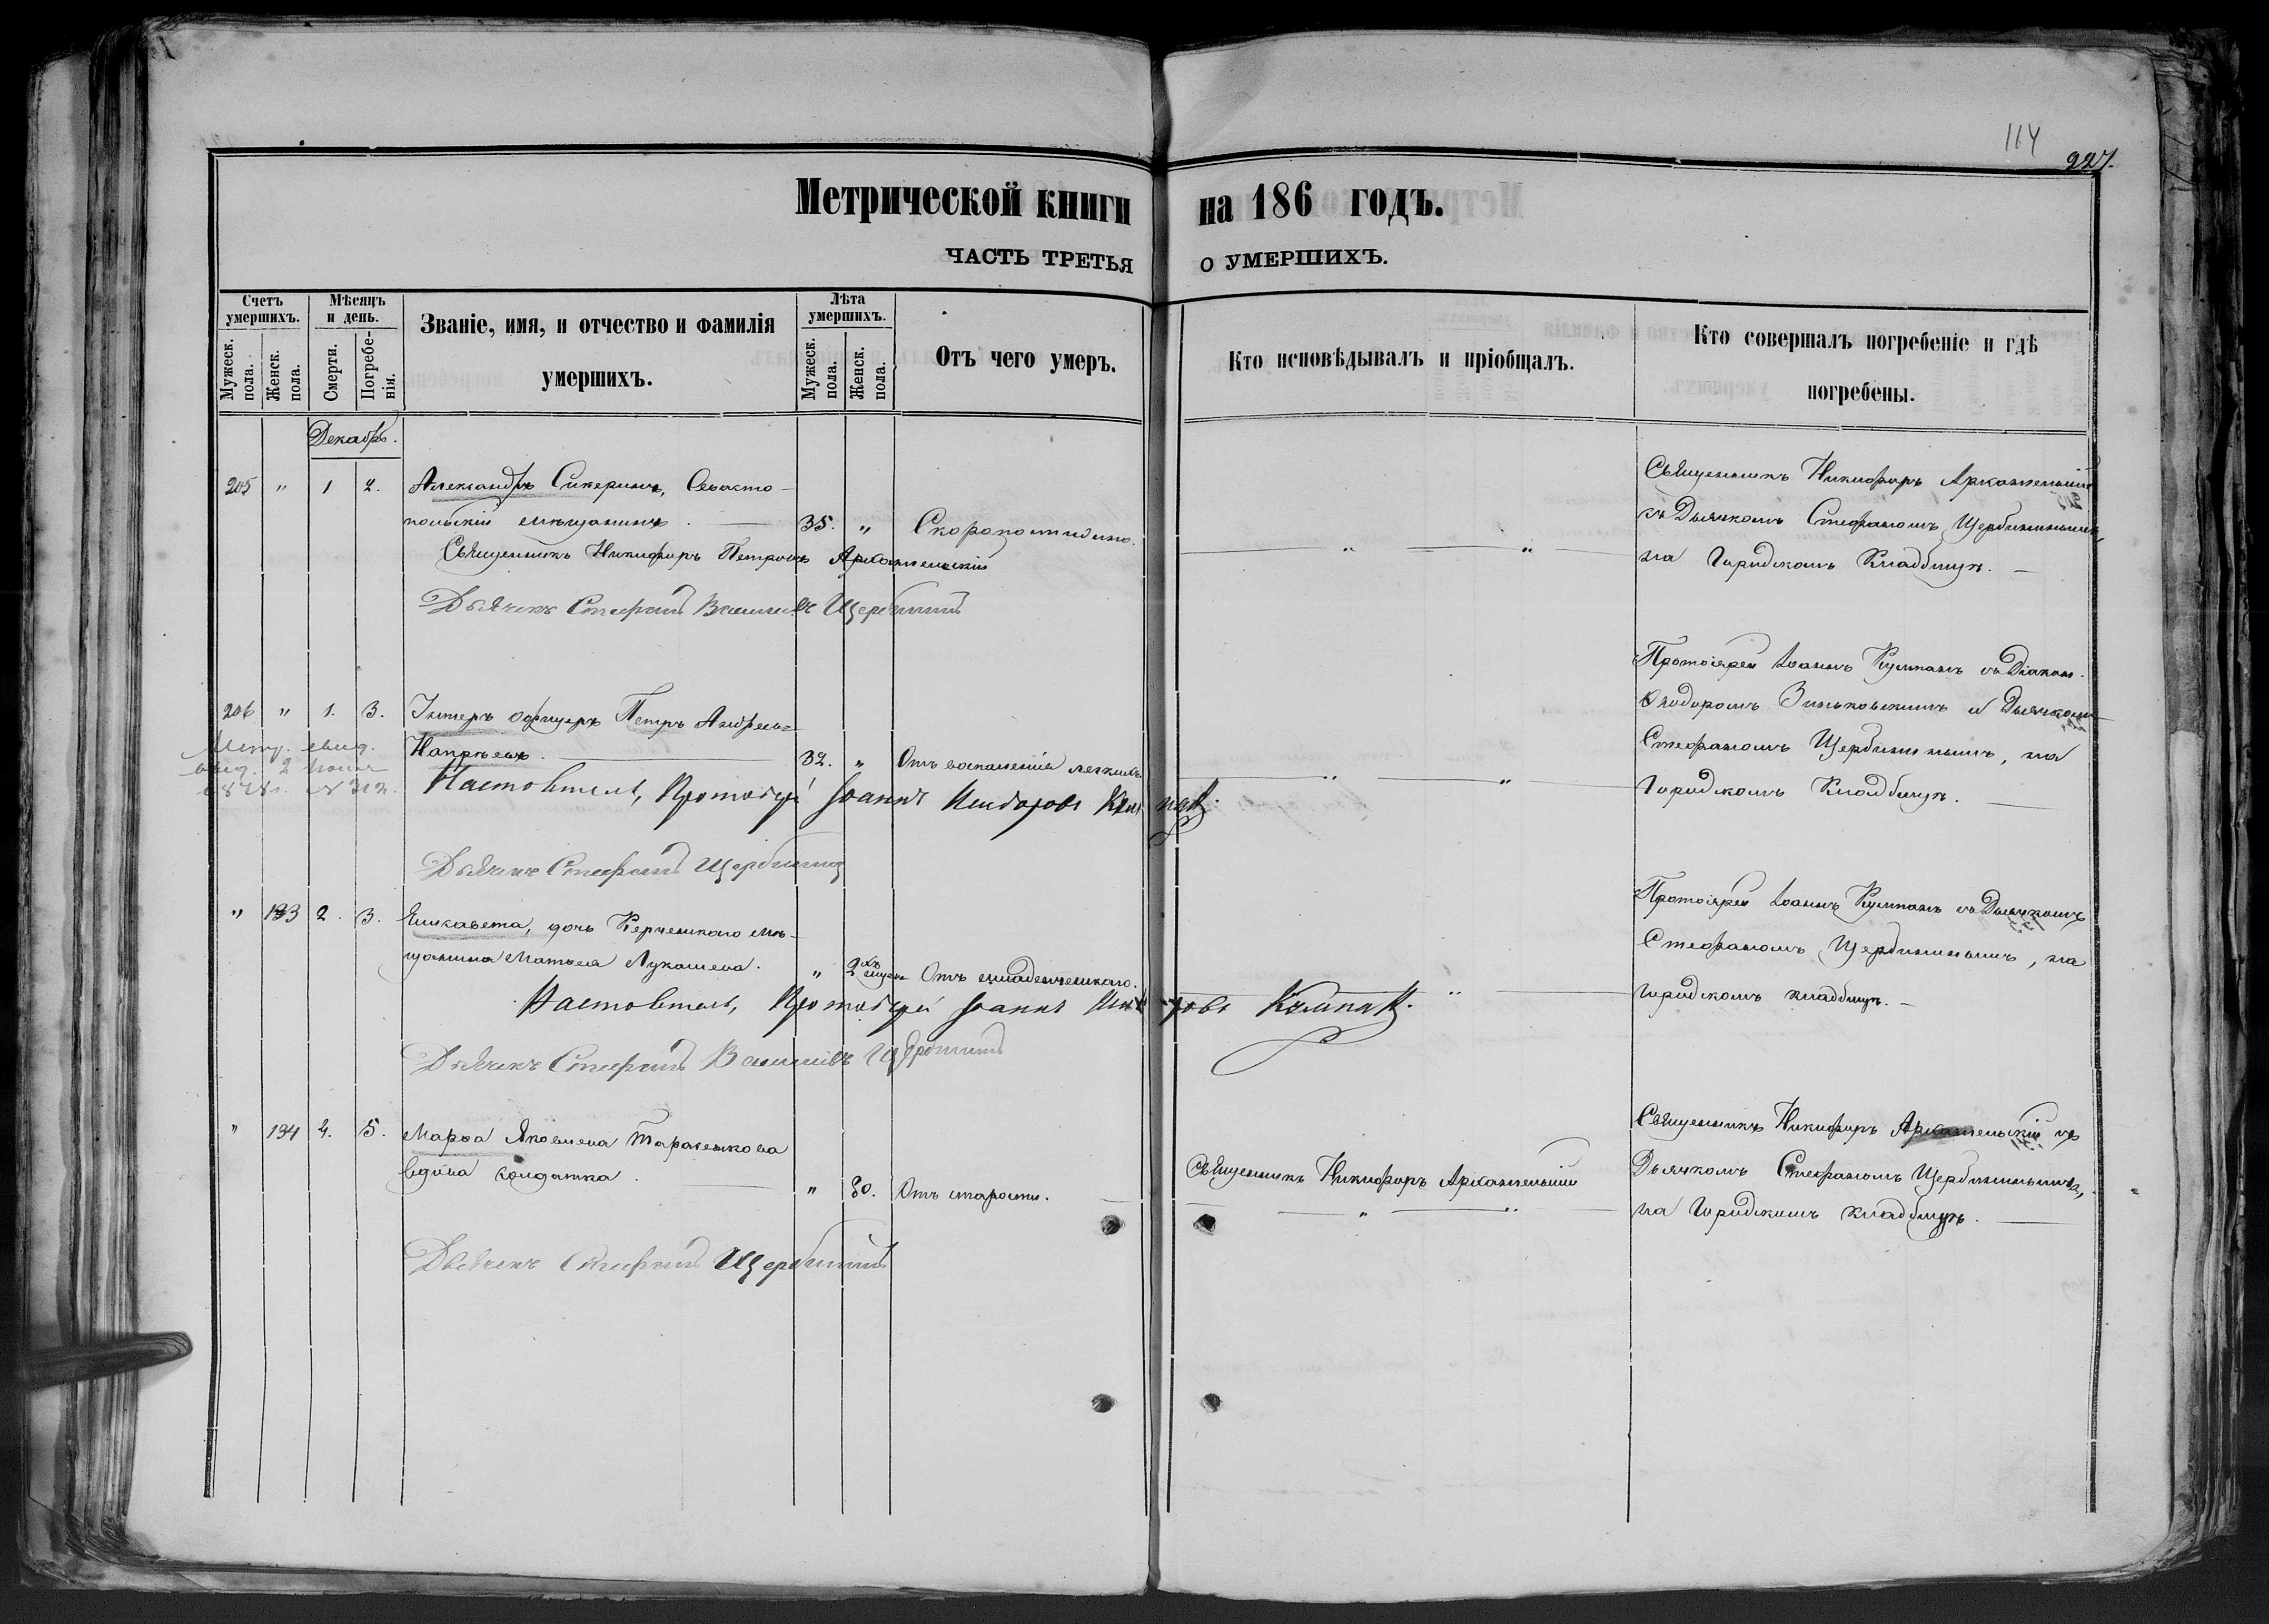 114
227.
Метрической книги на 186 годъ.
ЧАСТЬ ТРЕТЬЯ О УМЕРШИХЪ.
Счетъ умершихъ.
Мужеск. пола.
Женск. пола.
Мѣсяцъ и день.
Смерти.
Погребенія.
Званіе, имя, и отчество и фамилія
умершихъ.
Лѣта умершихъ.
Мужеск. пола.
Женск. пола.
Отъ чего умеръ.
Кто исповѣдывалъ и пріобщалъ.
Кто совершалъ погребеніе и гдѣ
погребены.
Декабрь.
205 " 1 2. Александръ Сикеринъ, Севасто-
польскій мѣщанинъ. 35. " Скоропостижно. " "
Священникъ Никифоръ Петровъ Архангельскій
Дьячекъ Стефанъ Васильевъ Щербининъ
Священникъ Никифоръ Архангельскій
съ Дьячкомъ Стефаномъ Щербининымъ,
на Городскомъ Кладбищѣ.
206 " 1. 3. Унтеръ офицеръ Петръ Андреевъ
32. " Отъ воспаленія легкихъ. " "
Метр. свид.
выд. 2
1878г. № 312.
Настоятель, Протоіерей Іоаннъ Исидоровъ Кумпан.
Дьячекъ Стефанъ Щербининъ
Протоіерей Іоаннъ Кумпанъ съ Діакон.
Ѳеодоромъ Зиньковскимъ и Дьячкомъ
Стефаномъ Щербининымъ, на
Городскомъ Кладбищѣ.
" 133 2. 3. Елисавета, дочь Керченскаго мѣ-
щанина Матвея Лукашева. " 2 хъ Отъ младенческаго. "
Настоятель, Протоіерей Іоаннъ Исидоровъ Кумпан.
Дьячекъ Стефанъ Васильевъ Щербининъ
Протоіерей Іоаннъ Кумпанъ съ Дьячкомъ
Стефаномъ Щербининымъ, на
городскомъ кладбищѣ.
" 134 4. 5. Марѳа Яковлева Тараненкова
вдова солдатка. " 80. Отъ старости.
Священникъ Никифоръ Архангельскій
" "
Дьячекъ Стефанъ Щербининъ
Священникъ Никифоръ Архангельскій съ
Дьячкомъ Стефаномъ Щербининымъ,
на Городскомъ кладбищѣ.